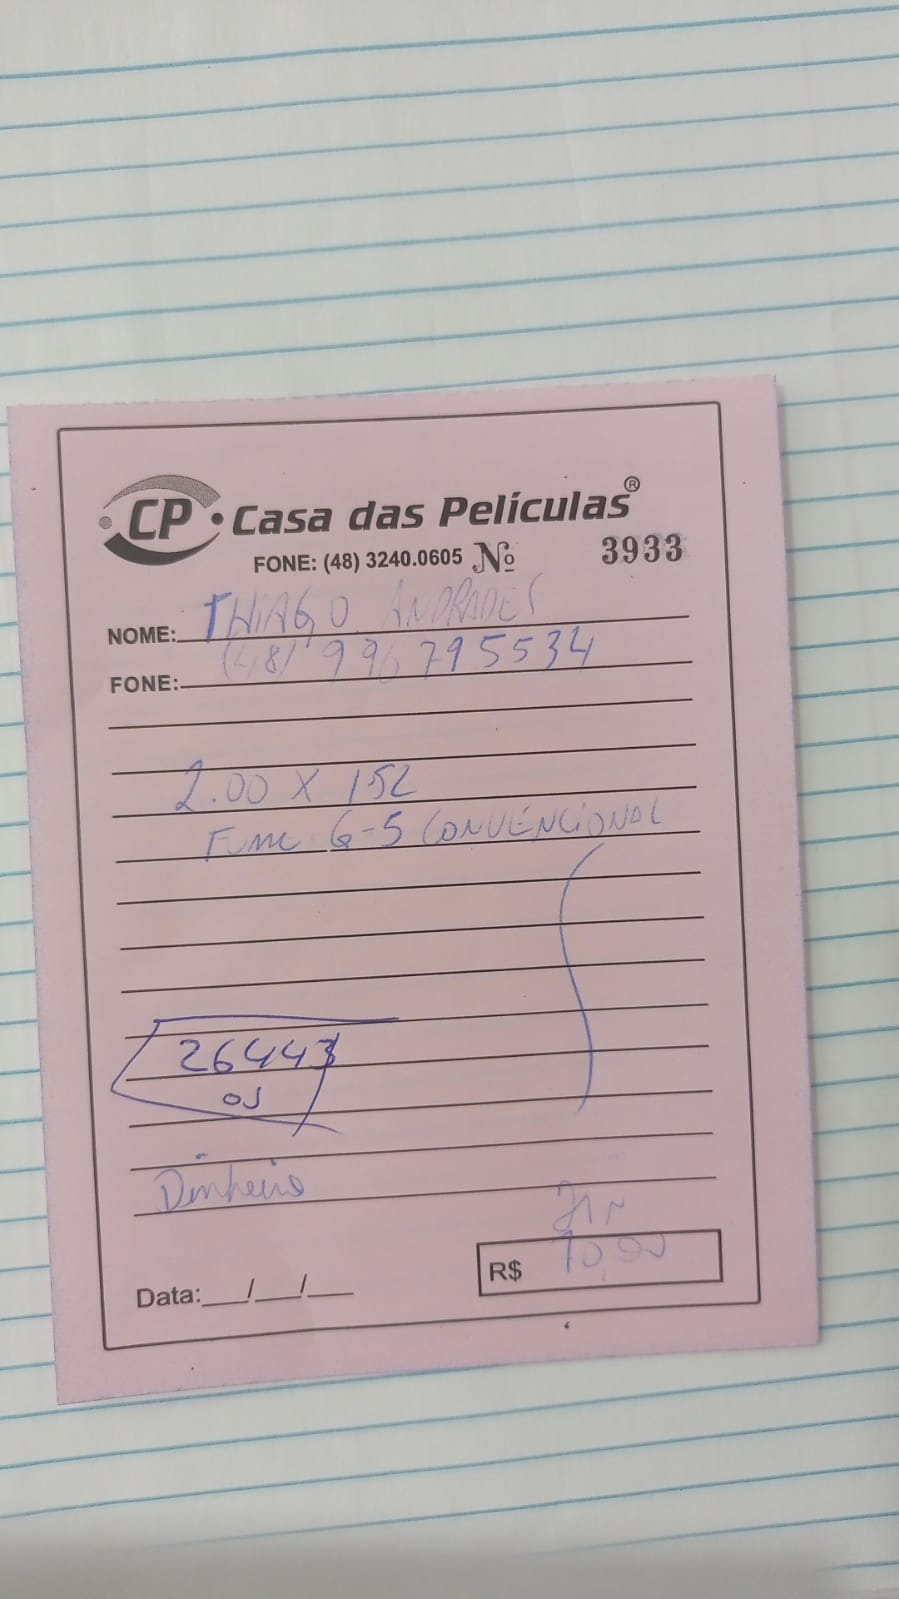 CP Casa das Películas®
FONE: (48) 3240.0605 Nº 3933
NOME: THIAGO ANDRADES
FONE: (48) 996795534
2.00 X 152
FUMC G-5 CONVENCIONAL
26443
OS
Dinheiro
Data:___/___/___
R$